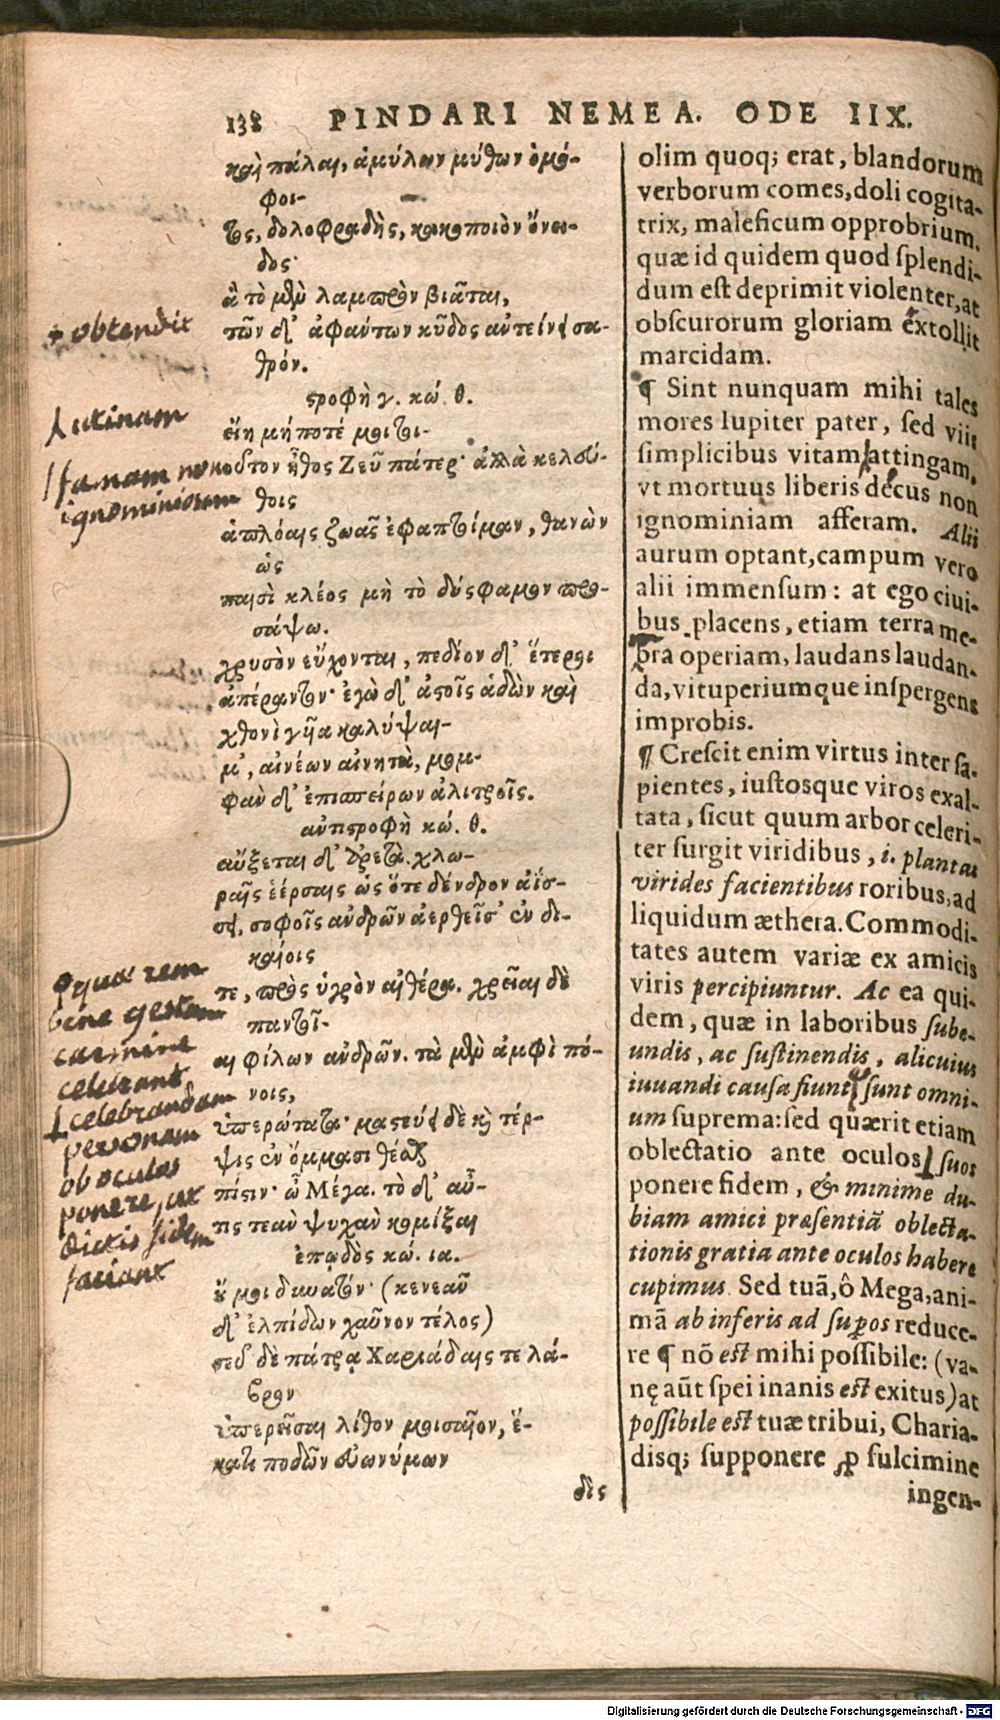 138 PINDARI NEMEA. ODE IIX.
καὶ πάλαι, αἱμύλων μύθων ὁμό-
φοι-
τος, δολοφραδὴς, κακοποιὸν ὄνει-
δος·
ἃ τὸ μὲν λαμπρὸν βιᾶται,
τῶν δ' ἀφάντων κῦδος ἀντείνει σα-
θρόν.
στροφὴ γ. κώ. θ.
εἴη μήποτέ μοι τοι-
οῦτον ἦθος Ζεῦ πάτερ· ἀλλὰ κελεύ-
θοις
ἁπλόαις ζωᾶς ἐφαπτοίμαν, θανὼν
ὡς
παισὶ κλέος μὴ τὸ δύσφαμον προσ-
σάψω.
χρυσὸν εὔχονται, πεδίον δ' ἕτεροι
ἀπέραντον· ἐγὼ δ' ἀστοῖς ἁδὼν καὶ
χθονὶ γυῖα καλύψαι-
μ', αἰνέων αἰνητὰ, μομ-
φὰν δ' ἐπισπείρων ἀλιτροῖς.
ἀντιστροφὴ κώ. θ.
αὔξεται δ' ἀρετὰ. χλω-
ραῖς ἐέρσαις ὡς ὅτε δένδρον ἀΐσ-
σει, σοφοῖς ἀνδρῶν ἀερθεῖσ' ἐν δι-
καίοις
τε, πρὸς ὑγρὸν αἰθέρα. χρεῖαι δὲ
παντοῖ-
αι φίλων ἀνδρῶν. τὰ μὲν ἀμφὶ πό-
νοις,
ὑπερώτατα· μαστεύει δὲ καὶ τέρ-
ψις ἐν ὄμμασι θέσθαι
πίστιν· ὦ Μέγα. τὸ δ' αὖ-
τις τεὰν ψυχὰν κομίξαι
ἐπῳδὸς κώ. ια.
οὔ μοι δυνατόν· (κενεᾶν
δ' ἐλπίδων χαῦνον τέλος)
σεῦ δὲ πάτρᾳ Χαριάδαις τε λά-
βρον
ὑπερεῖσαι λίθον μοισαῖον, ἕ-
κατι ποδῶν εὐωνύμων
δὶς
obtendit
Lucinam
famam non
ignominiosam
qua rem
bene gestam
carmine
celebrant
celebrandam
personam
ob oculos
ponere, ut
dictis fidem
faciant
olim quoq; erat, blandorum
verborum comes, doli cogita-
trix, maleficum opprobrium.
quæ id quidem quod splendi-
dum est deprimit violenter, at
obscurorum gloriam extollit
marcidam.
¶ Sint nunquam mihi tales
mores Iupiter pater, sed viis
simplicibus vitam attingam,
vt mortuus liberis decus non
ignominiam afferam. Alii
aurum optant, campum vero
alii immensum: at ego ciui-
bus placens, etiam terra me-
bra operiam, laudans laudan-
da, vituperiumque inspergens
improbis.
¶ Crescit enim virtus inter sa-
pientes, iustosque viros exal-
tata, sicut quum arbor celeri-
ter surgit viridibus, i. plantas
virides facientibus roribus, ad
liquidum æthera. Commodi-
tates autem variæ ex amicis
viris percipiuntur. Ac ea qui-
dem, quæ in laboribus sube-
undis, ac sustinendis, alicuius
iuuandi causa fiunt, sunt omni-
um suprema: sed quærit etiam
oblectatio ante oculos suos
ponere fidem, & minime du-
biam amici præsentiā oblecta-
tionis gratia ante oculos habere
cupimus. Sed tuā, ô Mega, ani-
mā ab inferis ad supos reduce-
re ¶ nō est mihi possibile: (va-
nę aūt spei inanis est exitus) at
possibile est tuæ tribui, Charia-
disq; supponere p fulcimine
ingen-
Digitalisierung gefördert durch die Deutsche Forschungsgemeinschaft - DFG